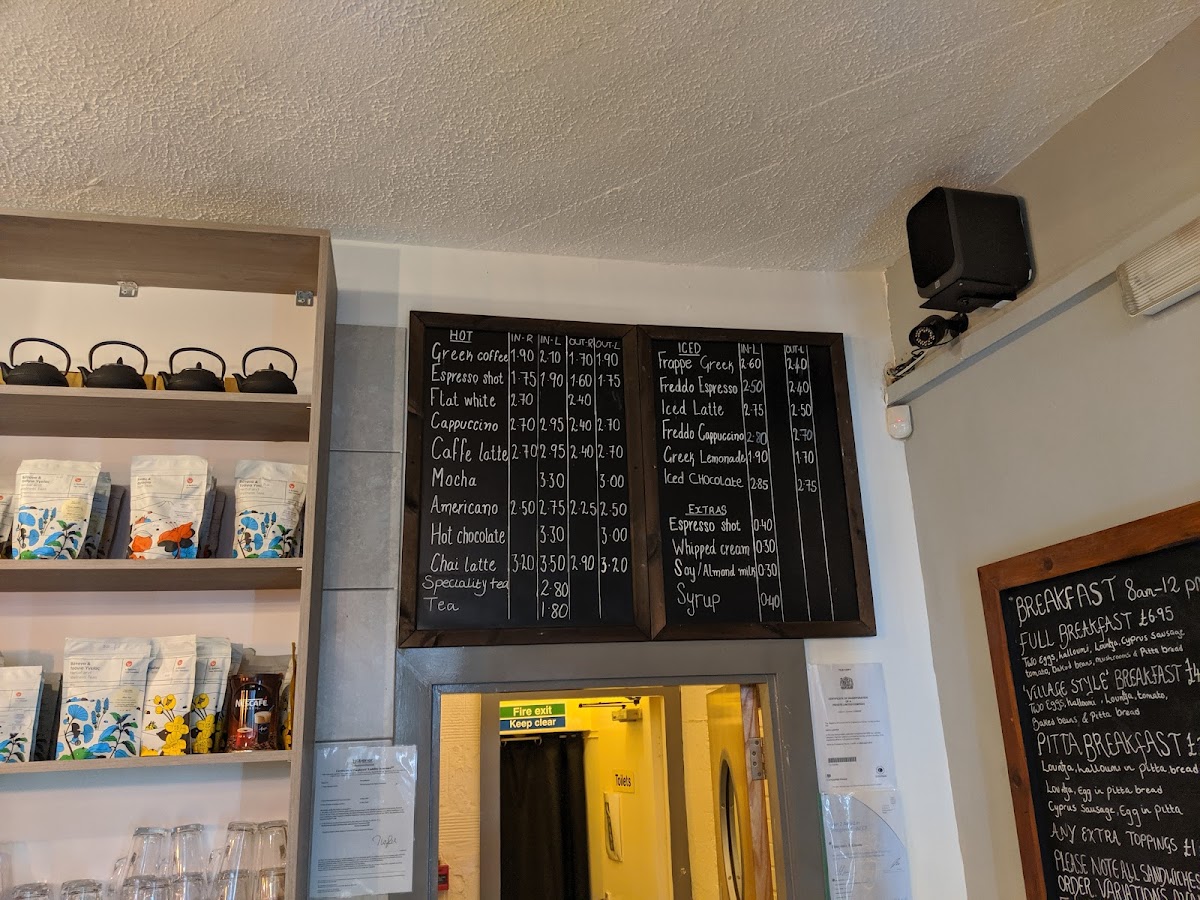 HOT IN-R IN-L OUT-R OUT-L
Greek coffee 1.90 2.10 1.70 1.90
Espresso shot 1.75 1.90 1.60 1.75
Flat white 2.70 2.40
Cappuccino 2.70 2.95 2.40 2.70
Caffe latte 2.70 2.95 2.40 2.70
Mocha 3.30 3.00
Americano 2.50 2.75 2.25 2.50
Hot chocolate 3.30 3.00
Chai latte 3.20 3.50 2.90 3.20
Speciality tea 2.80
Tea 1.80
ICED IN-L OUT-L
Frappe Greek 2.60 2.40
Freddo Espresso 2.50 2.40
Iced Latte 2.75 2.50
Freddo Cappuccino 2.80 2.70
Greek Lemonade 1.90 1.70
Iced CHOCOLATE 2.85 2.75
EXTRAS
Espresso shot 0.40
Whipped cream 0.30
Soy/Almond milk 0.30
Syrup 0.40
BREAKFAST 8am-12 pm
FULL BREAKFAST £6.95
Two eggs, halloumi, Lountza, Cyprus sausage
tomato, Baked beans, mushrooms & Pitta bread
'VILLAGE STYLE' BREAKFAST
Two Eggs, halloumi, Lountza, tomato,
Baked beans & Pitta bread
PITTA BREAKFAST
Lountza, halloumi in pitta bread
Lountza, Egg in pitta bread
Cyprus Sausage, Egg in Pitta
ANY EXTRA TOPPINGS £1
PLEASE NOTE ALL SANDWICHES
ORDER. VARIATIONS
Fire exit
Keep clear
Toilets
NESCAFÉ